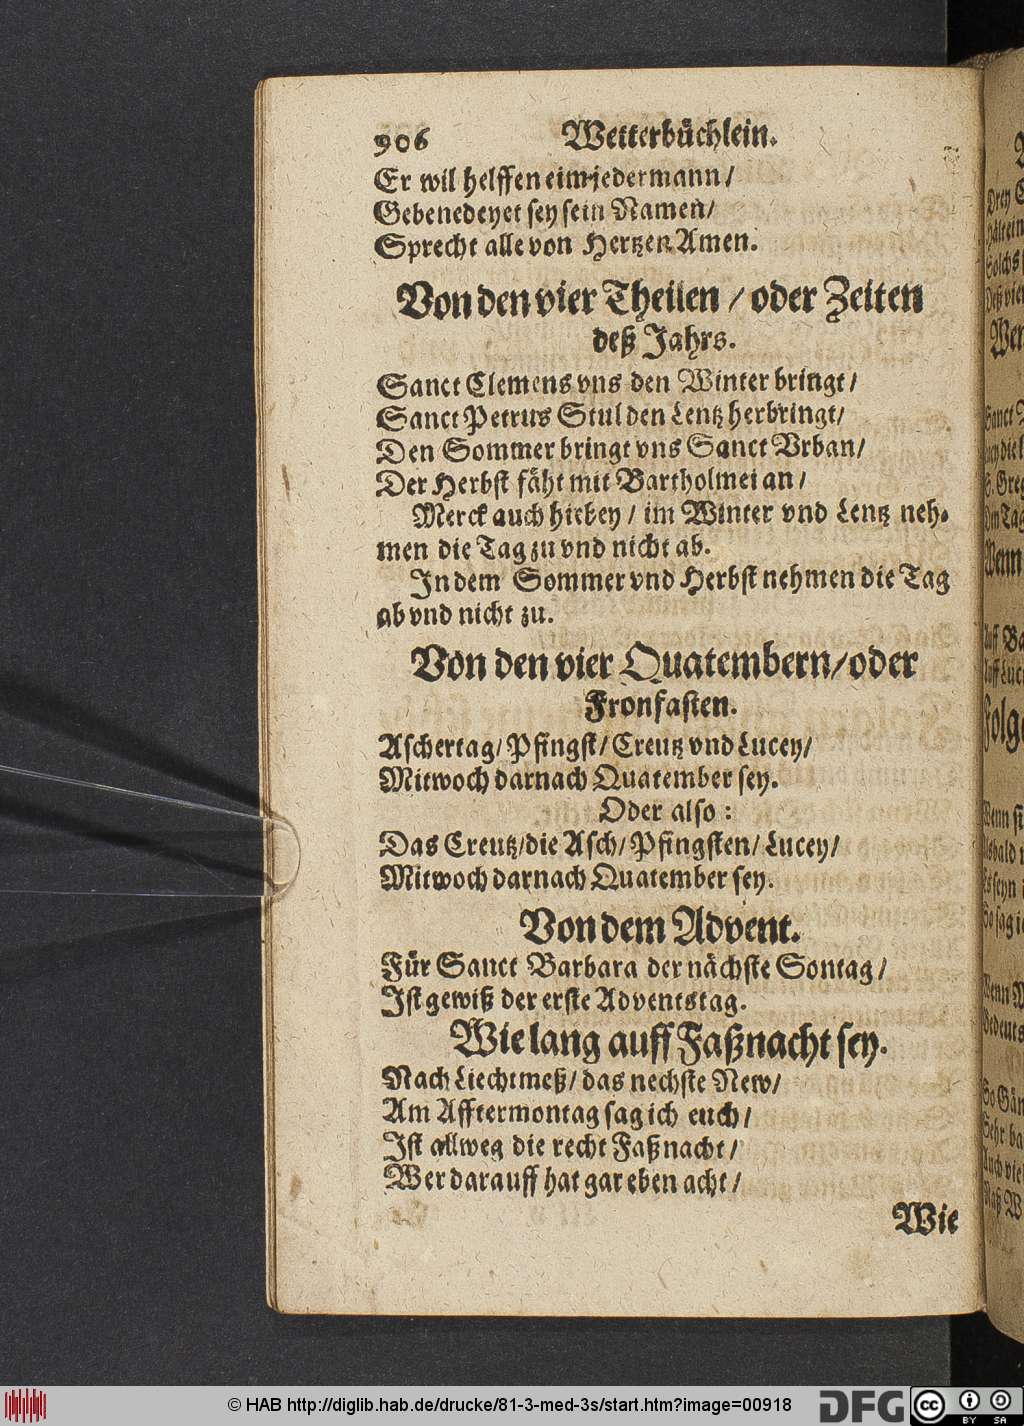 906 Wetterbüchlein.
Er wil helffen eim jedermann/
Gebenedeyet sey sein Namen/
Sprecht alle von Hertzen Amen.
Von den vier Theilen / oder Zeiten
deß Jahrs.
Sanct Clemens vns den Winter bringt/
Sanct Petrus Stul den Lentz herbringt/
Den Sommer bringt vns Sanct Vrban/
Der Herbst fäht mit Bartholmei an/
Merck auch hiebey / im Winter vnd Lentz neh-
men die Tag zu vnd nicht ab.
In dem Sommer vnd Herbst nehmen die Tag
ab vnd nicht zu.
Von den vier Quatembern/oder
Fronfasten.
Aschertag/ Pfingst/ Creutz vnd Lucey/
Mitwoch darnach Quatember sey.
Oder also:
Das Creutz/die Asch/ Pfingsten/ Lucey/
Mitwoch darnach Quatember sey.
Von dem Advent.
Für Sanct Barbara der nächste Sontag/
Ist gewiß der erste Adventstag.
Wie lang auff Faßnacht sey.
Nach Liechtmeß/ das nechste New/
Am Afftermontag sag ich euch/
Ist allweg die recht Faßnacht/
Wer darauff hat gar eben acht/
Wie
© HAB http://diglib.hab.de/drucke/81-3-med-3s/start.htm?image=00918
DFG
cc BY SA